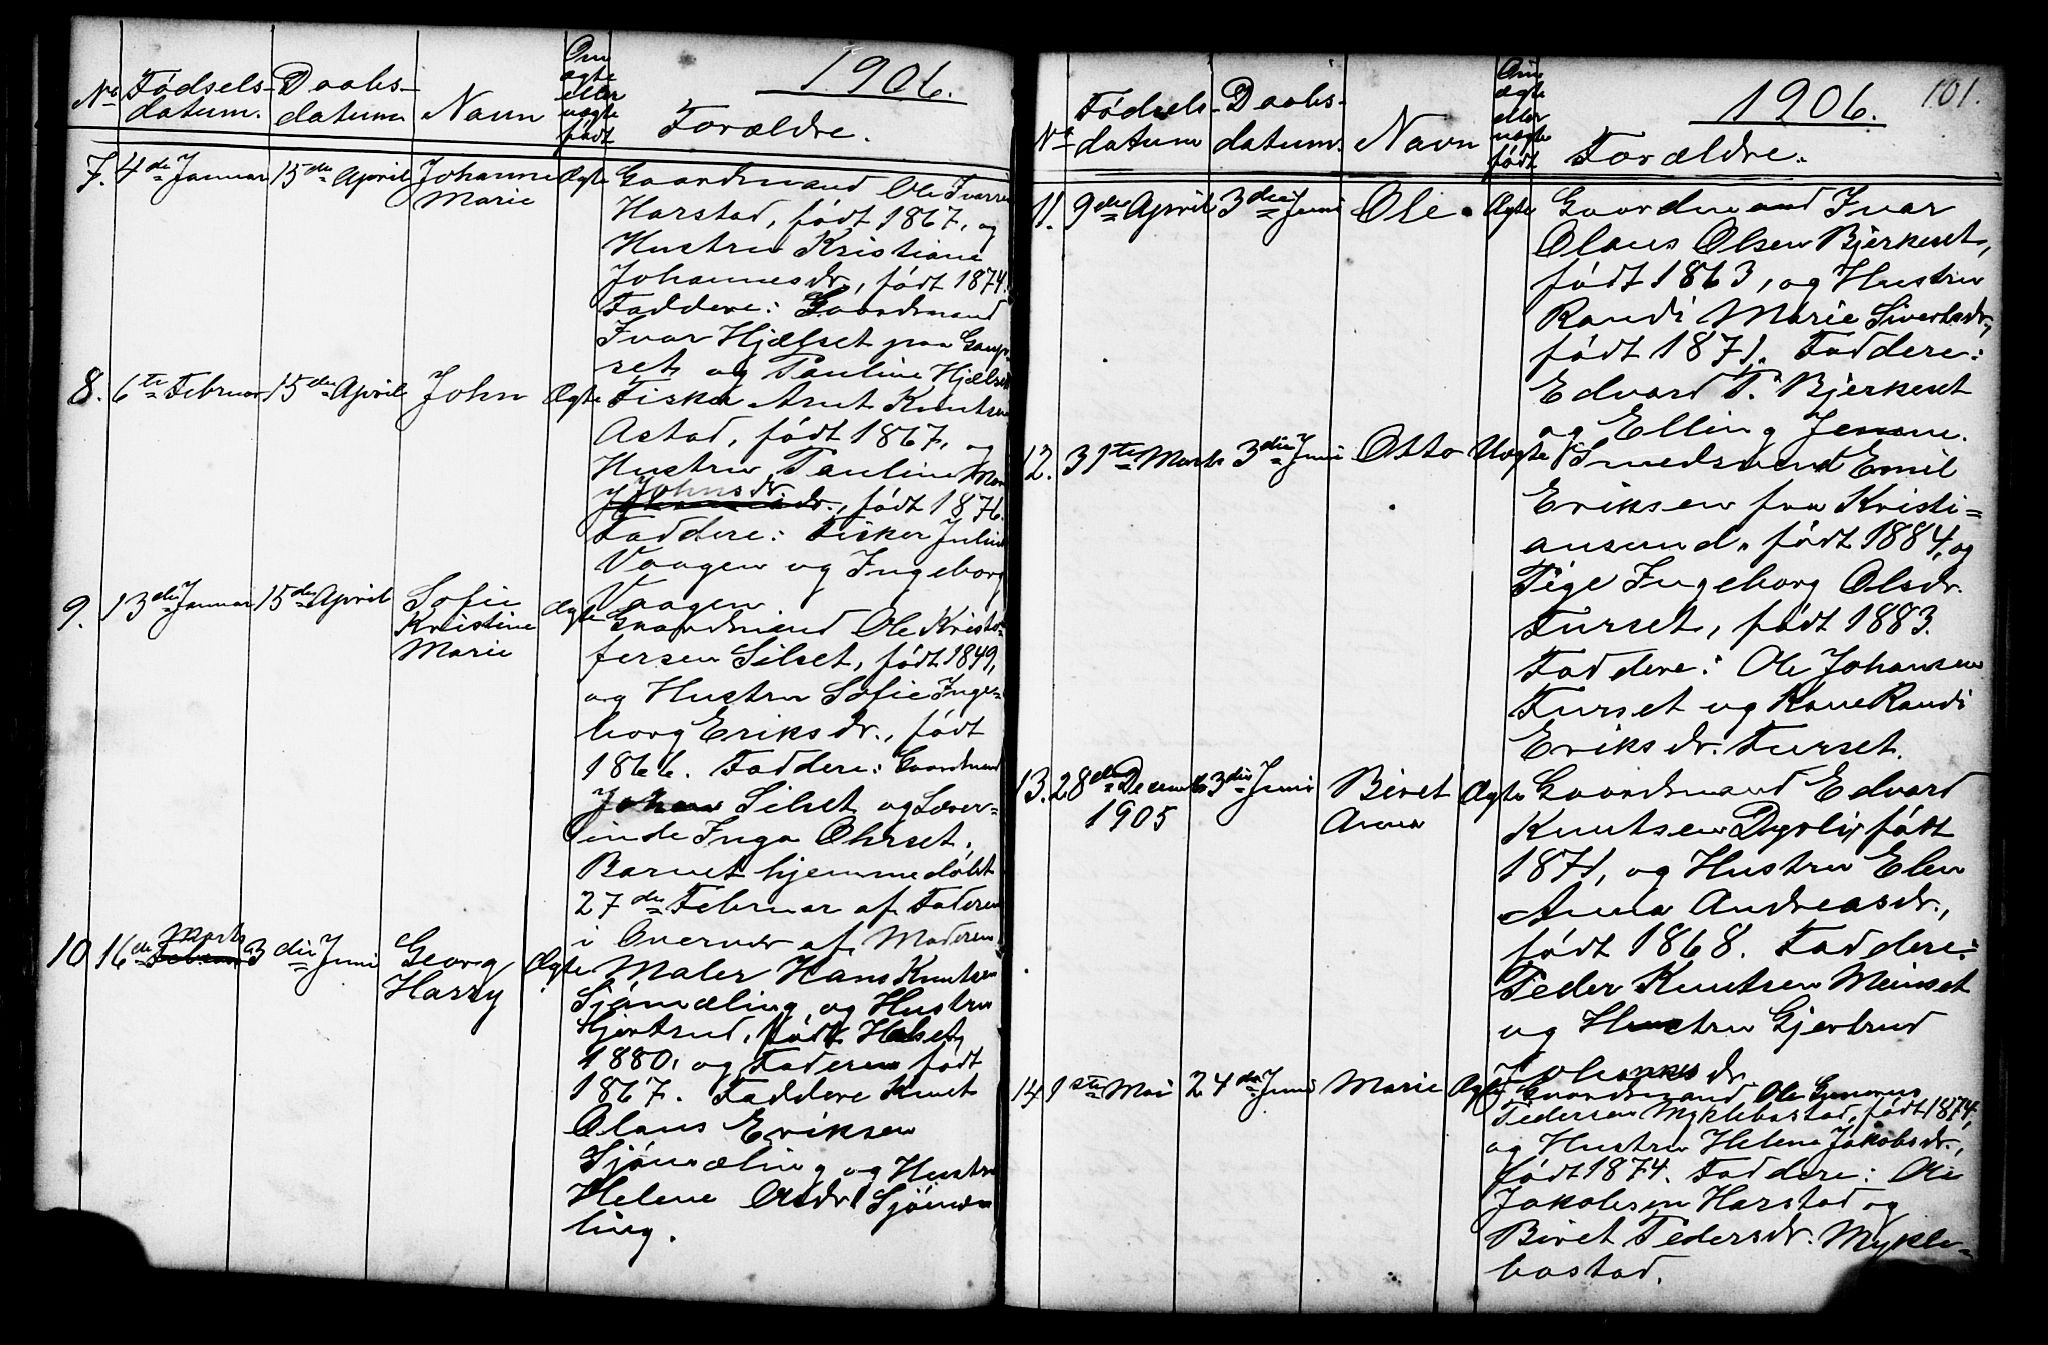 1906.
No Fødsels-datum. Daabs-datum Navn Om ægte eller uægte født Forældre.
7. 4de Januar 15de April Johanne Marie Ægte Gaardmand Ole Ivarsen
Harstad, født 1867, og
Hustru Kristiane
Johannesdr., født 1874.
Faddere: Gaardmand
Ivar Hjælset paa Gaup-
set og Pauline Hjælset
8. 6te Februar 15de April John Ægte Fisker Arnt Knutsen
Astad, født 1867, og
Hustru Pauline
Johnsdr., født 1876.
Faddere: Fisker Julius
Vaagen og Ingeborg
Vaagen
9. 13de Januar 15de April Sofie Kristine Marie Ægte Gaardmand Ole Kristo-
fersen Silset, født 1849,
og Hustru Sofie Inge-
borg Eriksdr., født
1866. Faddere: Gaardmand
Johan Silset og Lærer-
inde Inga Ohrset.
Barnet hjemmedøbt
27de Februar af Faderen
i Overvær af Moderen
10 16de Marts Februar 3die Juni Georg Harry Ægte Maler Hans Knutsen
Sjømæling og Hustru
Gjertrud, født Helset,
1880, og Faderen født
1867. Faddere Knut
Olaus Eriksen
Sjømæling og Hustru
Helene Olsdr Sjømæ-
ling.
101.
1906.
No Fødsels-datum Daabs-datum. Navn Om ægte eller uægte født Forældre.
11. 9de April 3die Juni Ole Ægte Gaardmand Ivar
Olaus Olsen Bjerkeset,
født 1863, og Hustru
Randi Marie Sivertsdr.,
født 1871. Faddere:
Edvard T. Bjerkeset
og Elling
12. 31te Marts 3die Juni Otto Uægte Smedsvend Emil
Eriksen fra Kristi-
ansund, født 1884, og
Pige Ingeborg Olsdr.
Furset, født 1883.
Faddere: Ole Johansen
Furset og Kone Randi
Eriksdr. Furset.
13. 28de Decemb 1905 3die Juni Beret Anna Ægte Gaardmand Edvard
Knutsen Døvlie født
1871, og Hustru Elen
Anna Andreasdr.,
født 1868. Faddere:
Peder Knutsen Meinset
og Hustru Gjertrud
Johannesdr.
14 1ste Mai 24de Juni Marie Ægte Gaardmand Ole Gunerius
Pedersen Myklebostad, født 1874,
og Hustru Helene Jakobsdr.,
født 1874. Faddere: Ole
Jakobsen Harstad og
Beret Pedersdr. Mykle-
bostad.